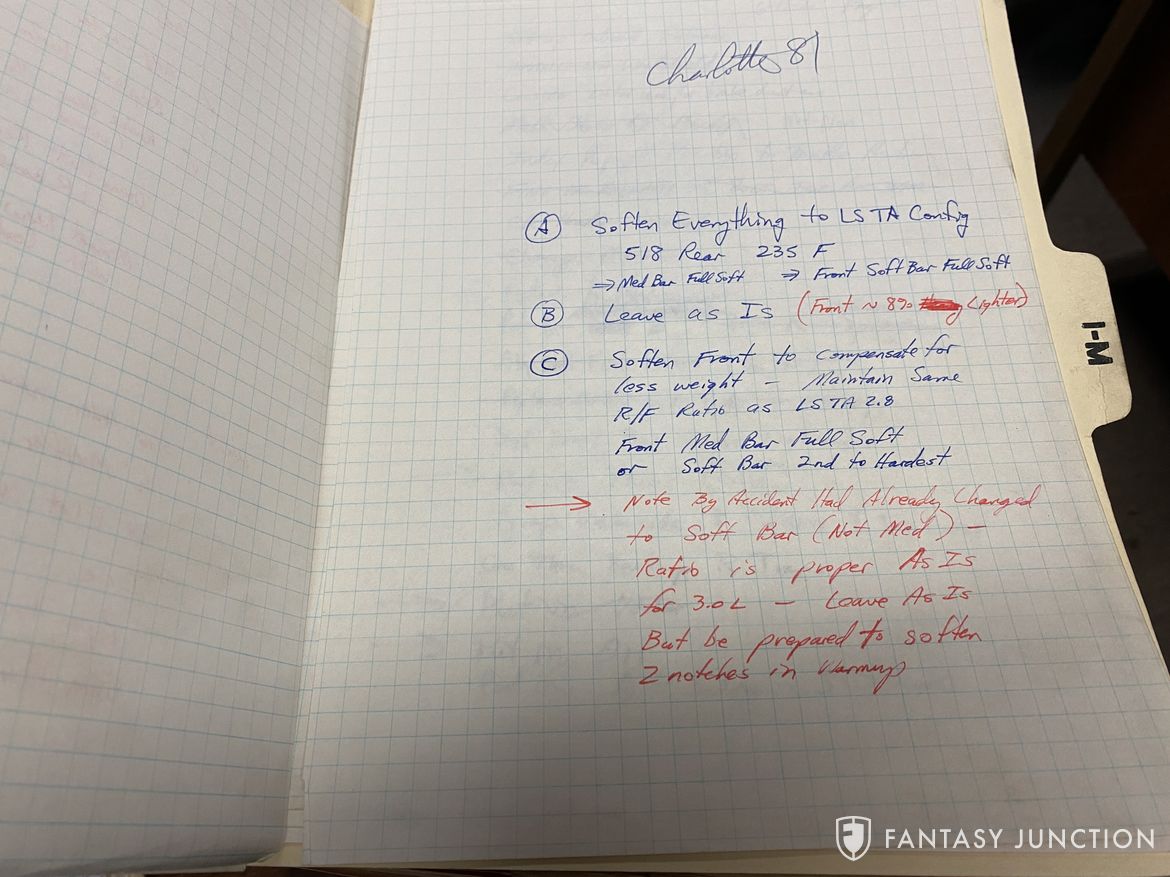 Charlotte 81
A Soften Everything to LSTA Config
518 Rear 235 F
⇒ Med Bar Full Soft ⇒ Front Soft Bar Full Soft
B Leave as Is (Front ~ 8% Lighter)
C Soften Front to compensate for
less weight - Maintain Same
R/F Ratio as LSTA 2.8
Front Med Bar Full Soft
or Soft Bar 2nd to Hardest
→ Note By Accident Had Already Changed
to Soft Bar (Not Med) -
Ratio is proper As Is
for 3.0L - Leave As Is
But be prepared to soften
2 notches in Warmup
I-M
FANTASY JUNCTION